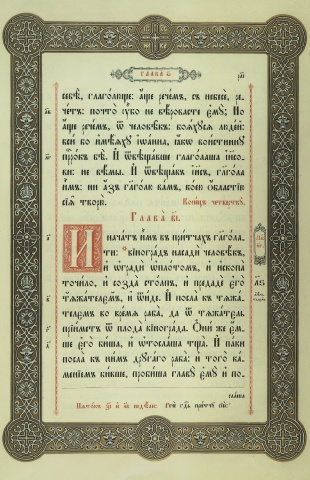 Глава к҃
себѣ, глаголюще: аще речемъ, съ небесе, ре-
четъ: почто ѹбо не вѣровасте емꙋ; Но
аще речемъ, ѿ человѣкъ: бояхꙋся людей:
вси бо имѣяхꙋ іѡанна, іакѡ воистиннꙋ
прⷪ҇рокъ бѣ. И ѿвѣщавше глаголаша іи҃сѹ-
ви: не вѣмы. И ѿвѣщавъ іи҃съ, глагола
имъ: ни азъ глаголю вамъ, коею областію
сія творю.
Конецъ четвертку.
Глава в҃і
И начатъ имъ въ притчахъ глагола-
ти: виноградъ насади человѣкъ,
и ѡгради ѡплотомъ, и ископа
точило, и созда столпъ, и предаде его
тѧжателемъ, и ѿиде. И посла къ тѧжа-
телемъ во время раба, да ѿ тѧжатель
прійметъ ѿ плода винограда. Они же ем-
ше его биша, и ѿослаша тща. И паки
посла къ нимъ дрꙋгаго раба: и того ка-
меніемъ бивше, пробиша главꙋ емꙋ и по-